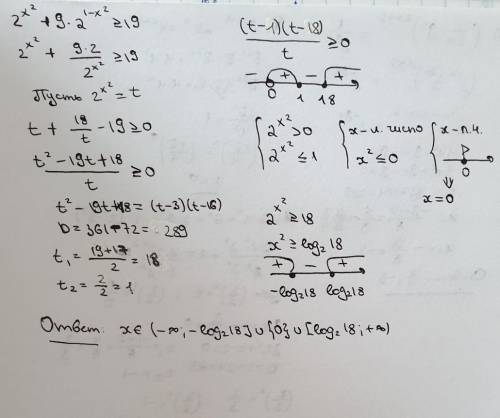 2^{x^2} + 9 · 2^{1-x^2} ≥ 19
2^{x^2} + \frac{9·2}{2^{x^2}} ≥ 19
Пусть 2^{x^2} = t
t + \frac{18}{t} - 19 ≥ 0
\frac{t^2 - 19t + 18}{t} ≥ 0
t^2 - 19t + 18 = (t-3)(t-16)
D = 361 - 72 = 289
t_1 = \frac{19+17}{2} = 18
t_2 = \frac{2}{2} = 1
\frac{(t-1)(t-18)}{t} ≥ 0
- + - +
0 1 18
{ 2^{x^2} > 0 { x - л. число { x - л.ч.
{ 2^{x^2} ≤ 1 { x^2 ≤ 0 0
⇓
x = 0
2^{x^2} ≥ 18
x^2 ≥ log_2 18
+ - +
-log_2 18 log_2 18
Ответ: x ∈ (-∞; -log_2 18] ∪ {0} ∪ [log_2 18; +∞)